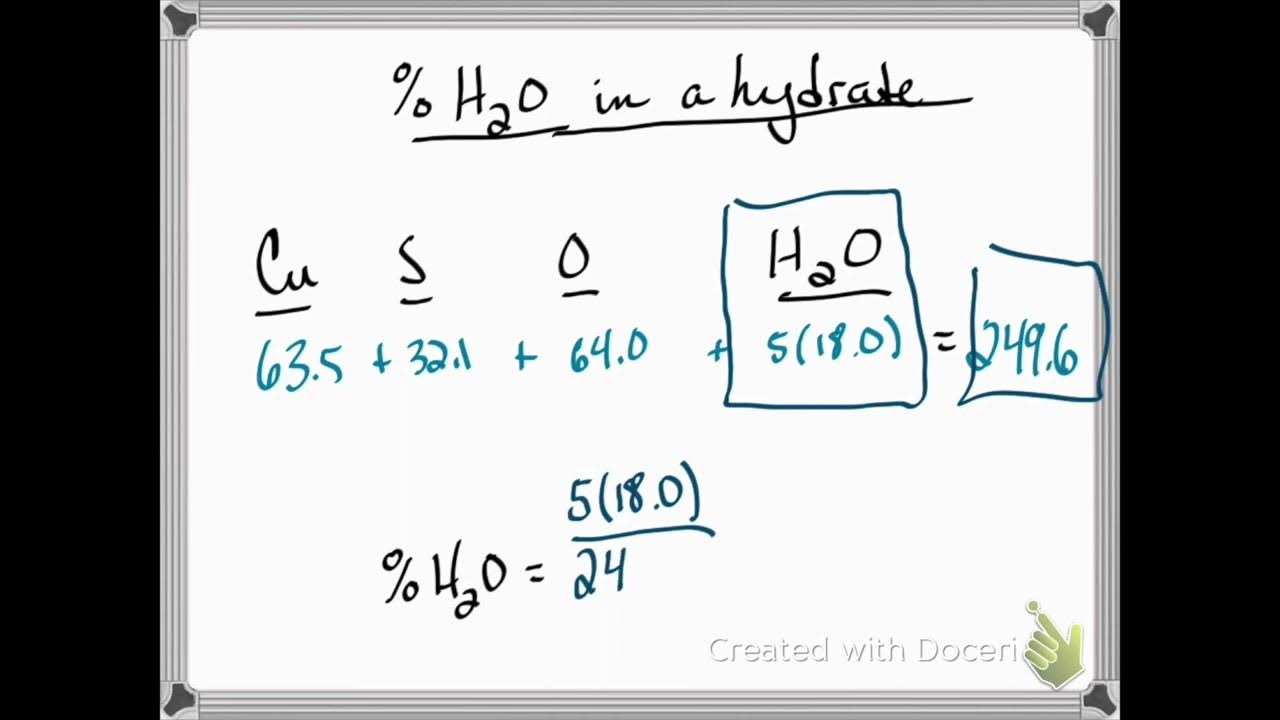 % H₂O in a hydrate
Cu S O H₂O
63.5 + 32.1 + 64.0 + 5(18.0) = 249.6
5(18.0)
% H₂O = 24
Created with Doceri